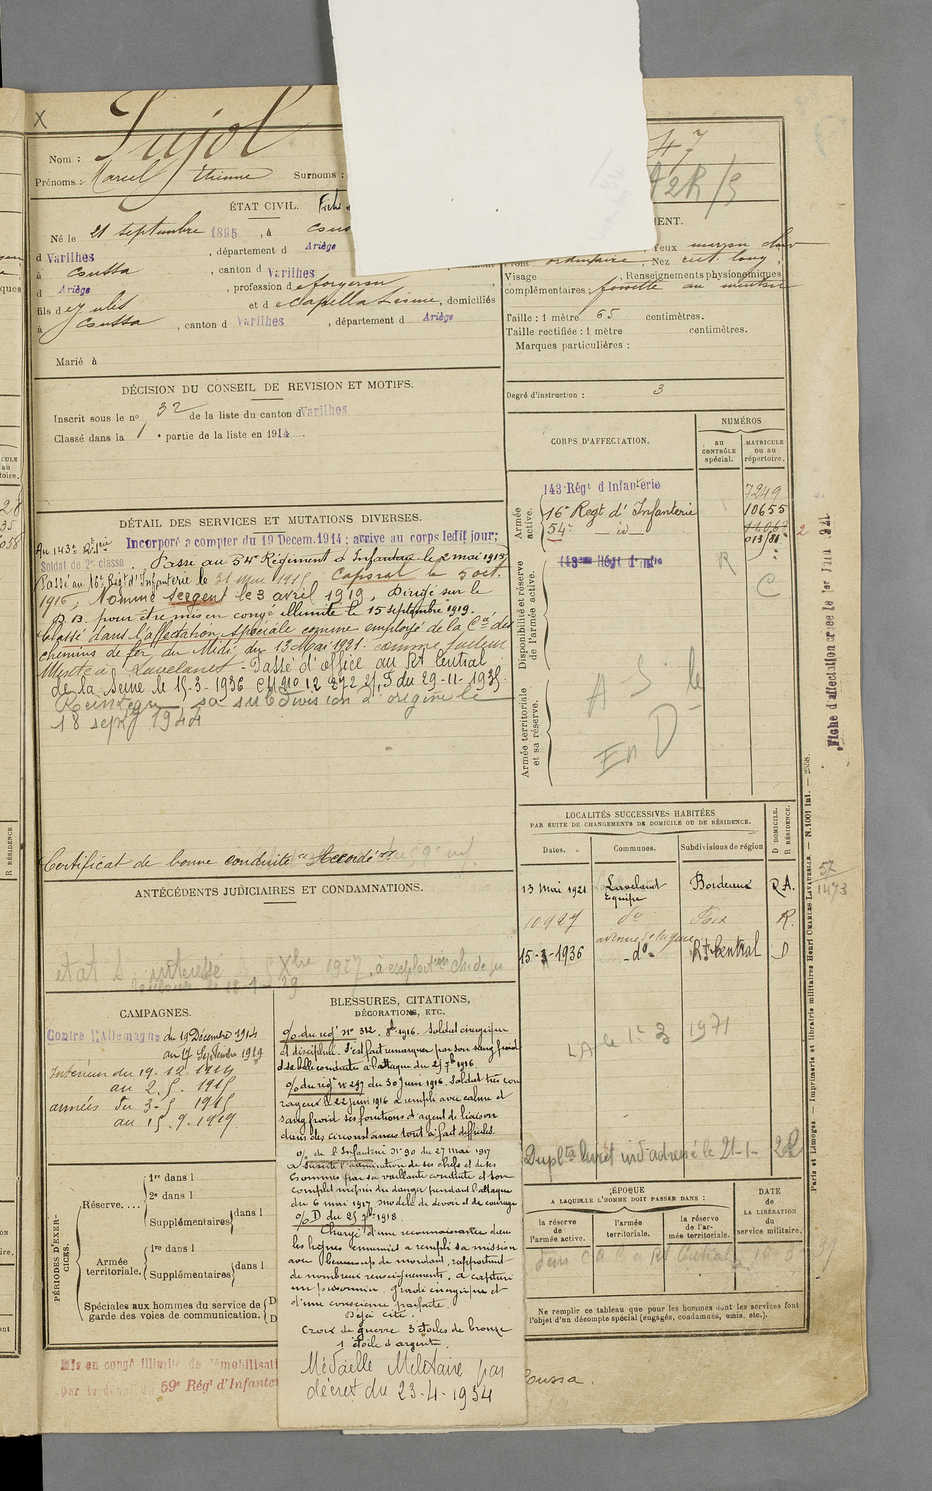 X
Pujol
Nom :
Prénoms : Marcel Etienne Surnoms :
47
ÉTAT CIVIL.
Né le 21 septembre 1895, à
d Varilhes, département d Ariège
à Coussa, canton d Varilhes
d Ariège, profession de forgeron
fils de Jules et de Capella Lésime, domiciliés
à Coussa, canton d Varilhes, département d Ariège
Marié à
MENT.
Yeux marron clair
Front ordinaire, Nez rect. long,
Visage , Renseignements physionomiques
complémentaires : fossette au menton
Taille : 1 mètre 65 centimètres.
Taille rectifiée : 1 mètre centimètres.
Marques particulières :
Degré d'instruction : 3
DÉCISION DU CONSEIL DE REVISION ET MOTIFS.
Inscrit sous le no 32 de la liste du canton d Varilhes
Classé dans la 1e partie de la liste en 1914.
DÉTAIL DES SERVICES ET MUTATIONS DIVERSES.
Incorporé a compter du 19 Décem. 1914 ; arrive au corps ledit jour ;
Au 143e Rgt
Soldat de 2e classe. Passé au 54e Régiment d'Infanterie le 2 mai 1915
Passé au 16e Regt d'Infanterie le 31 Mai 1915. Caporal le 5 oct.
1916, Nommé sergent le 3 avril 1919, Dirigé sur le
D.D. pour être mis en congé illimité le 15 septembre 1919.
Classé dans l'affectation spéciale comme employé de la Cie des
chemins de fer du Midi du 13 Mai 1921. comme facteur
Mixte à Lavelanet. Passé d'office au Rt Central
de la Seine le 15-3-1936 CM no 12 272 2/5 du 29-11-1935.
Réintégré sa subdivision d'origine le
18 sept 1944
Certificat de bonne conduite "Accordé"
ANTÉCÉDENTS JUDICIAIRES ET CONDAMNATIONS.
CORPS D'AFFECTATION.
NUMÉROS
AU CONTRÔLE spécial.
MATRICULE ou au répertoire.
Armée active.
143 Régt d'Infanterie 7249
16e Regt d'Infanterie 10655
54e - id -
Disponibilité et réserve de l'armée active.
143me Régt Infie
R
C
Armée territoriale et sa réserve.
A S
En D
Fiche d'affectation créée le 1er Juin 1921
LOCALITÉS SUCCESSIVES HABITÉES
PAR SUITE DE CHANGEMENTS DE DOMICILE OU DE RÉSIDENCE.
D DOMICILE. R RÉSIDENCE.
Dates. Communes. Subdivisions de région
13 Mai 1921 Lavelanet Bordeaux R.A.
Equipe
10 9 27 do Foix R.
avenue de la gare
15-3-1936 - do - Rt Central D
57
1473
LA le 1er 3 1971
le 21-1- 2R
CAMPAGNES.
Contre l'Allemagne du 19 Décembre 1914
au 17 Septembre 1919
Intérieur du 19.12.1914
au 2.5.1915
armées du 3-5 1915
au 15.9.1919
BLESSURES, CITATIONS, DÉCORATIONS, ETC.
% du regt no 312. 8bre 1916. Soldat énergique
et discipliné. S'est fait remarquer par son sang froid
et sa belle conduite à l'attaque du 25 7bre 1916.
% du regt no 257 du 30 Juin 1916. Soldat très cou
rageux le 22 juin 1916 a rempli avec calme et
sang froid ses fonctions d'agent de liaison
dans des circonstances tout à fait difficiles.
% de l'Infanterie no 90 du 27 mai 1917
a suscité l'admiration de ses chefs et de ses
hommes par sa vaillante conduite et son
complet mépris du danger pendant l'attaque
du 6 mai 1917 modèle de devoir et de courage
% D du 25 7bre 1918.
Chargé d'une reconnaissance dans
les lignes ennemies a rempli sa mission
avec beaucoup de mordant, rapportant
de nombreux renseignements, a capturé
un prisonnier. gradé énergique et
d'une conscience parfaite.
Déjà cité.
Croix de guerre 3 étoiles de bronze
1 étoile d'argent.
Médaille Militaire par
décret du 23-4-1934
PÉRIODES D'EXERCICES.
Réserve....
1re dans l
2e dans l
Supplémentaires dans l
Armée territoriale.
1re dans l
Supplémentaires dans l
Spéciales aux hommes du service de
garde des voies de communication.
ÉPOQUE
A LAQUELLE L'HOMME DOIT PASSER DANS :
la réserve de l'armée active.
l'armée territoriale.
la réserve de l'armée territoriale.
DATE de LA LIBÉRATION du service militaire.
Ne remplir ce tableau que pour les hommes dont les services font
l'objet d'un décompte spécial (engagés, condamnés, omis, etc.).
Mis en congé illimité de démobilisati
59e Régt d'Infanter
Coussa.
Paris et Limoges. — Imprimerie et librairie militaires Henri CHARLES-LAVAUZELLE. — N. 1001 Int. — 2558.